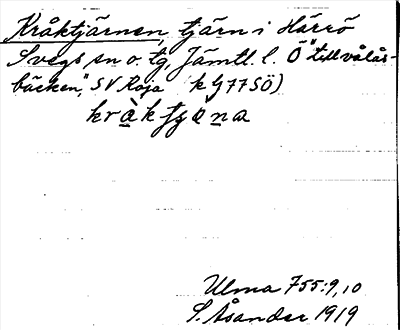 Kråktjärnen, tjärn i Härrö
Svegs sn o. tg, Jämtl. l. Ö "till vålås-
bäcken", SV Roja (k g 77 SÖ)
kràktjäṇa
Ulma 755:9,10
S. Åsander 1919